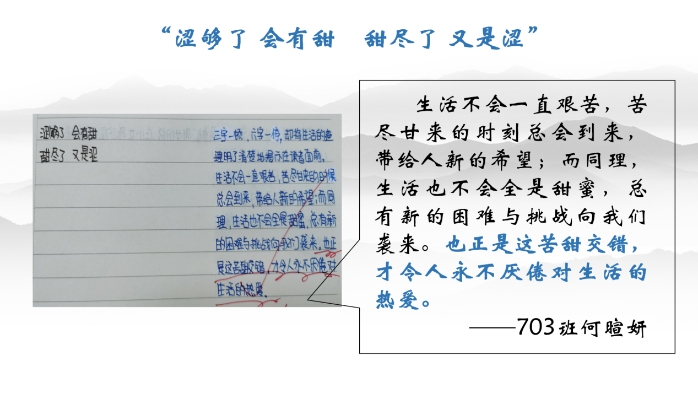 “涩够了 会有甜 甜尽了 又是涩”
涩够了 会有甜
甜尽了 又是涩
三字一顿，六字一停，却将生活的道
理用了清楚地揭示在读者面前。
生活不会一直艰苦，苦尽甘来的时候
总会到来，带给人新的希望；而同
理，生活也不会全是甜蜜，总有新
的困难与挑战向我们袭来。也正
是这苦甜交错，才令人永不厌倦对
生活的热爱。
生活不会一直艰苦，苦
尽甘来的时刻总会到来，
带给人新的希望；而同理，
生活也不会全是甜蜜，总
有新的困难与挑战向我们
袭来。也正是这苦甜交错，
才令人永不厌倦对生活的
热爱。
——703班何暄妍